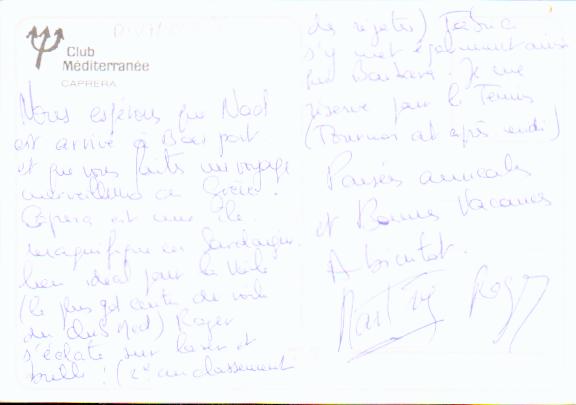 Club
Méditerranée
CAPRERA
Nous espérons que Noël
est arrivé à Bon port
et que vous faites un voyage
merveilleux en Grèce.
Caprera est une île
magnifique en Sardaigne
lieu idéal pour la Voile
(le plus gd centre de voile
du Club Med) Roger
s'éclate sur laser et
brille ! (2e au classement
des régates)
s'y met également ainsi
que Barbara. Je me
réserve pour le Tennis
(Tournoi cet après midi)
Pensées amicales
et Bonnes Vacances
A bientôt.
Martine Roger